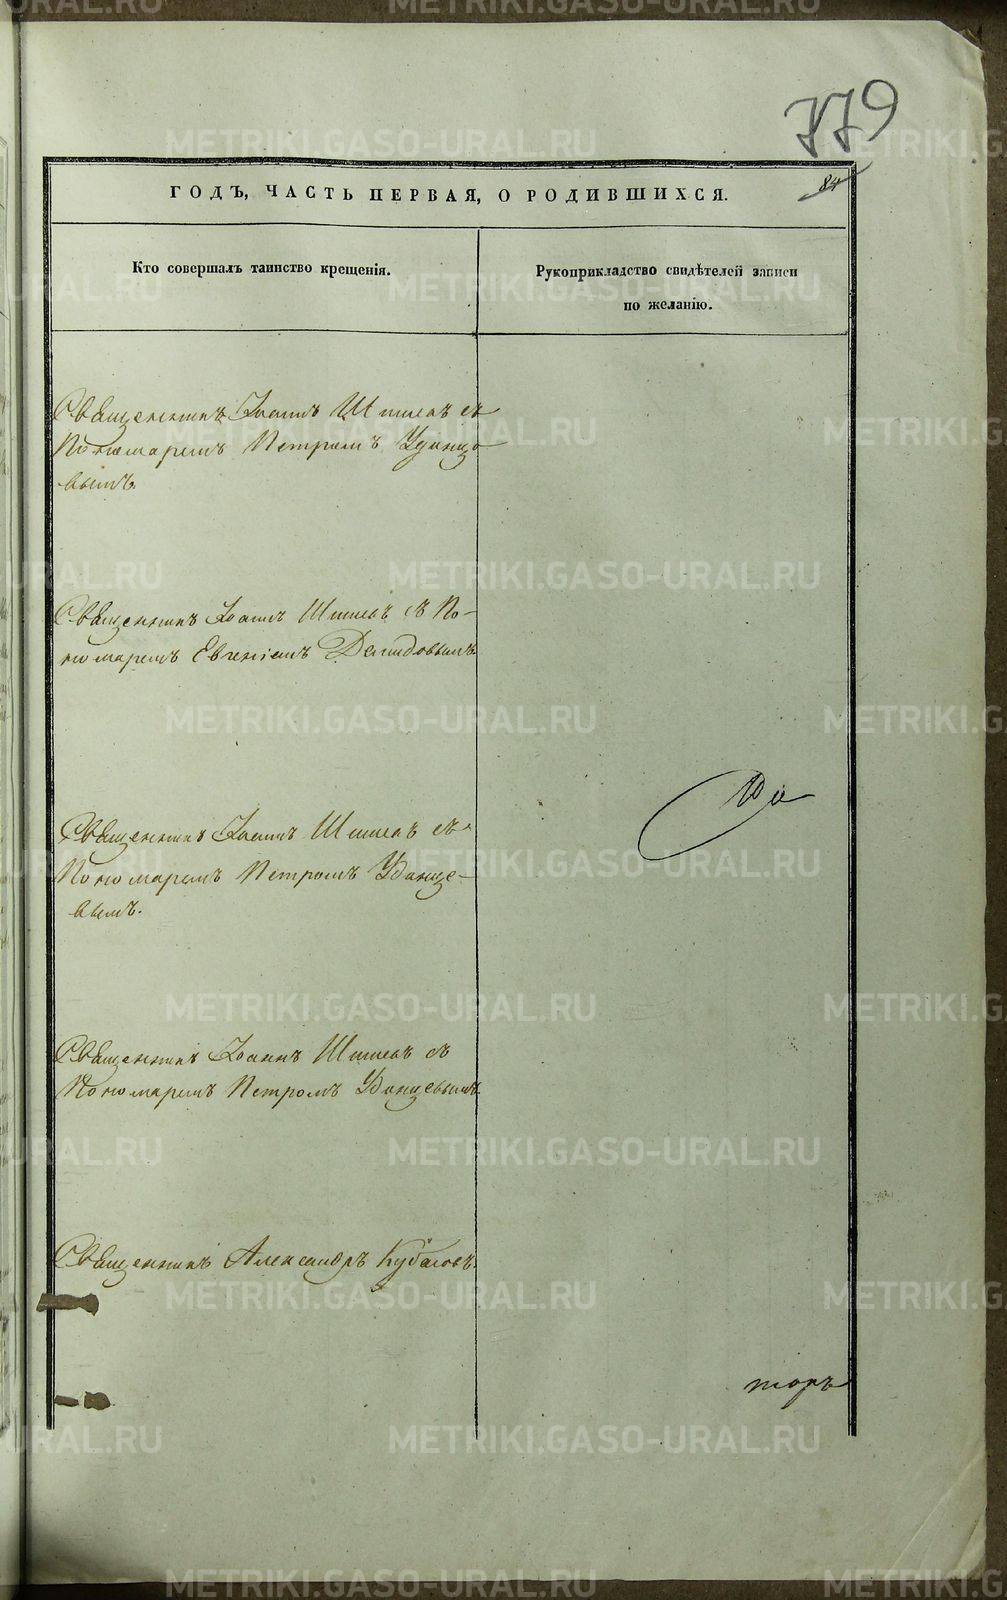 779
84
ГОДЪ, ЧАСТЬ ПЕРВАЯ, О РОДИВШИХСЯ.
Кто совершалъ таинство крещенія.
Рукоприкладство свидѣтелей записи
по желанію.
Священникъ Іоаннъ Шишевъ съ
Пономаремъ Петромъ Удинцо
вымъ.
Священникъ Іоаннъ Шишевъ съ По-
номаремъ Евгеніемъ Демидовымъ.
Священникъ Іоаннъ Шишевъ съ
Пономаремъ Петромъ Удинце-
вымъ.
Священникъ Іоаннъ Шишевъ съ
Пономаремъ Петромъ Удинцевымъ.
Священникъ Александръ Кубасовъ.
торъ
METRIKI.GASO-URAL.RU